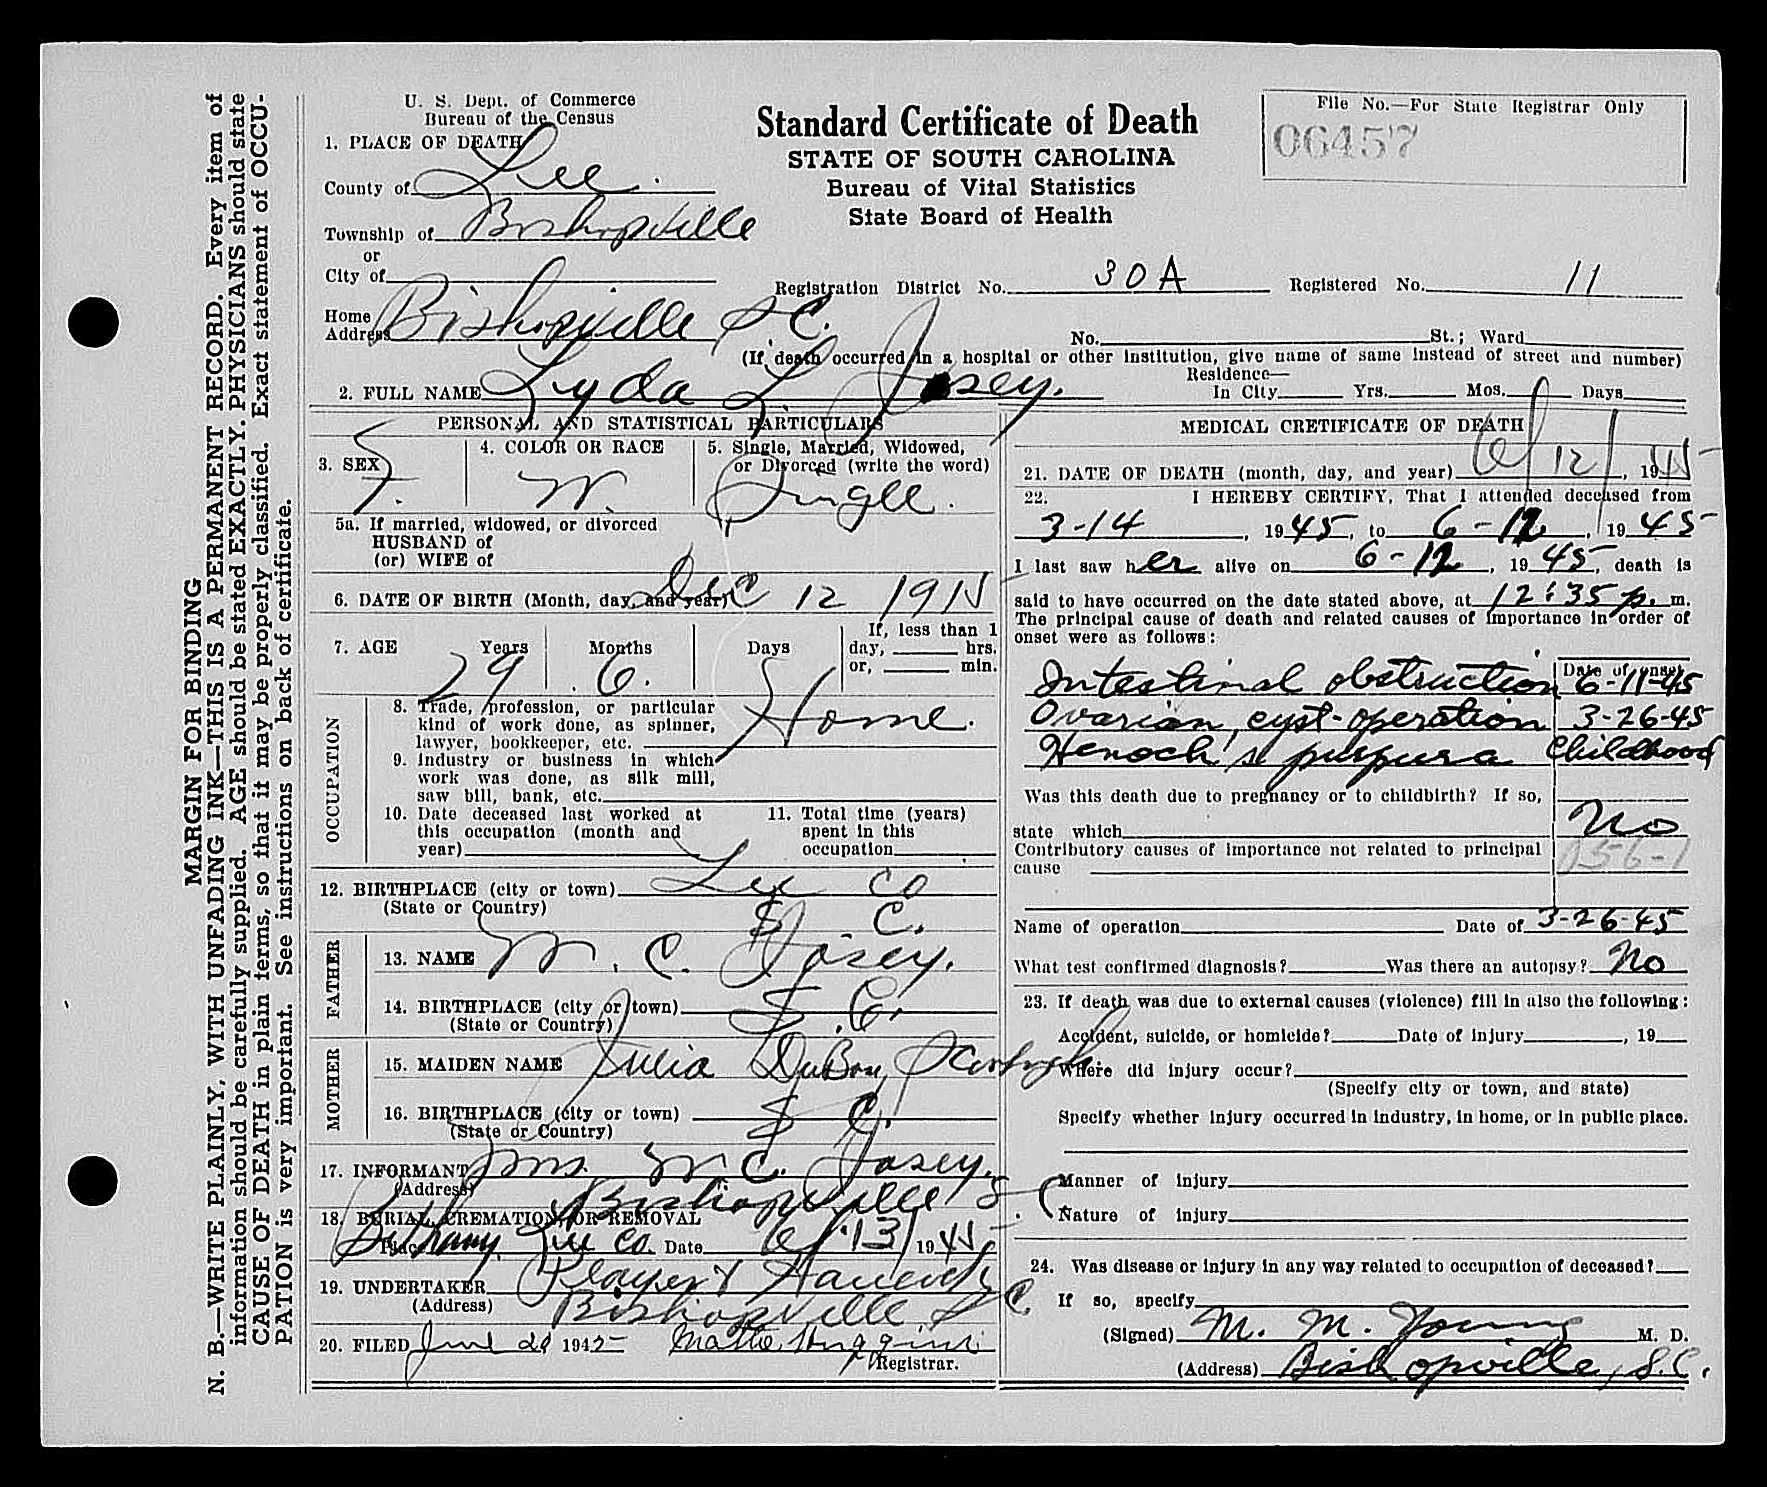 MARGIN FOR BINDING
N. B.—WRITE PLAINLY, WITH UNFADING INK—THIS IS A PERMANENT RECORD. Every item of
information should be carefully supplied. AGE should be stated EXACTLY. PHYSICIANS should state
CAUSE OF DEATH in plain terms, so that it may be properly classified. Exact statement of OCCU-
PATION is very important. See instructions on back of certificate.
U. S. Dept. of Commerce
Bureau of the Census
Standard Certificate of Death
STATE OF SOUTH CAROLINA
Bureau of Vital Statistics
State Board of Health
File No.—For State Registrar Only
06457
1. PLACE OF DEATH
County of Lee
Township of Bishopville
or
City of
Registration District No. 30A Registered No. 11
Home Address Bishopville S C.
No. St.; Ward
(If death occurred in a hospital or other institution, give name of same instead of street and number)
2. FULL NAME Lyda L. Josey.
Residence—
In City Yrs. Mos. Days
PERSONAL AND STATISTICAL PARTICULARS
3. SEX F. 4. COLOR OR RACE W. 5. Single, Married, Widowed,
or Divorced (write the word) Single.
5a. If married, widowed, or divorced
HUSBAND of
(or) WIFE of
6. DATE OF BIRTH (Month, day, and year) Dec 12 1915
7. AGE Years 29 Months 6. Days If, less than 1
day, hrs.
or, min.
OCCUPATION
8. Trade, profession, or particular
kind of work done, as spinner,
lawyer, bookkeeper, etc. Home.
9. Industry or business in which
work was done, as silk mill,
saw bill, bank, etc.
10. Date deceased last worked at
this occupation (month and
year)
11. Total time (years)
spent in this
occupation
12. BIRTHPLACE (city or town) Lee Co
(State or Country) S. C.
FATHER
13. NAME M. C. Josey.
14. BIRTHPLACE (city or town) S. C.
(State or Country)
MOTHER
15. MAIDEN NAME Julia DuBou
16. BIRTHPLACE (city or town) S C.
(State or Country)
17. INFORMANT Mrs. M C. Josey.
(Address) Bishopville S C
18. BURIAL, CREMATION, OR REMOVAL
Place Bethany, Lee Co. Date 6/13/1945
19. UNDERTAKER Player & Hancock
(Address) Bishopville S C.
20. FILED June 20 1945 Mattie Huggins
Registrar.
MEDICAL CRETIFICATE OF DEATH
21. DATE OF DEATH (month, day, and year) 6/12/, 1945
22. I HEREBY CERTIFY, That I attended deceased from
3-14, 1945, to 6-12, 1945
I last saw her alive on 6-12, 1945, death is
said to have occurred on the date stated above, at 12:35 p. m.
The principal cause of death and related causes of importance in order of
onset were as follows:
Date of onset
Intestinal obstruction 6-11-45
Ovarian cyst-operation 3-26-45
Henoch's purpura Childhood
Was this death due to pregnancy or to childbirth? If so,
state which No
Contributory causes of importance not related to principal
cause
Name of operation Date of 3-26-45
What test confirmed diagnosis? Was there an autopsy? No
23. If death was due to external causes (violence) fill in also the following:
Accident, suicide, or homicide? Date of injury , 19
Where did injury occur?
(Specify city or town, and state)
Specify whether injury occurred in industry, in home, or in public place.
Manner of injury
Nature of injury
24. Was disease or injury in any way related to occupation of deceased?
If so, specify
(Signed) M. M. Young M. D.
(Address) Bishopville, S.C.